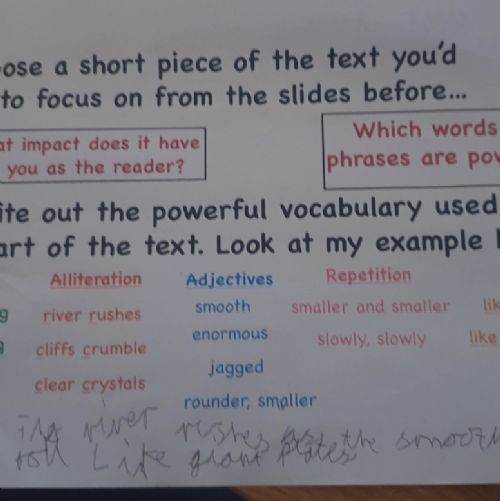 ose a short piece of the text you'd
to focus on from the slides before...
at impact does it have
you as the reader?
Which words
phrases are pow
ite out the powerful vocabulary used
art of the text. Look at my example
Alliteration Adjectives Repetition
g river rushes smooth smaller and smaller lik
g cliffs crumble enormous slowly, slowly like
clear crystals jagged
rounder, smaller
river rushes the smooth
Like giant plates